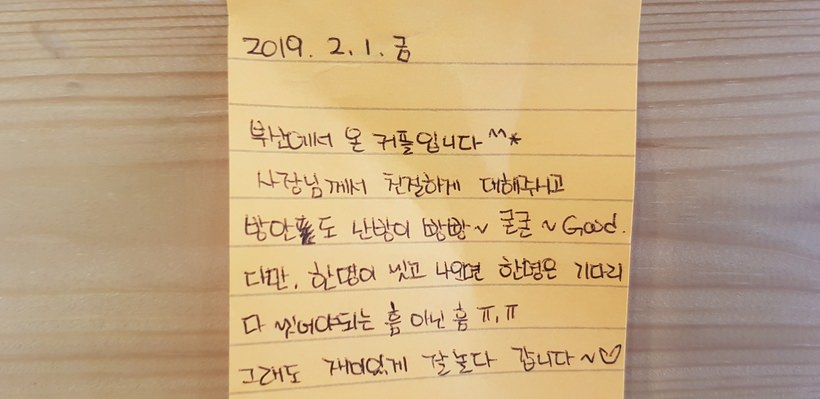 2019. 2. 1. 금
부산에서 온 커플입니다 ^^*
사장님께서 친절하게 대해주시고
방안도 난방이 빵빵~ 굳굳~ Good.
다만, 한명이 씻고 나오면 한명은 기다리
다 씻어야되는 흠 아닌 흠 ㅠ.ㅠ
그래도 재미있게 잘놀다 갑니다~♡